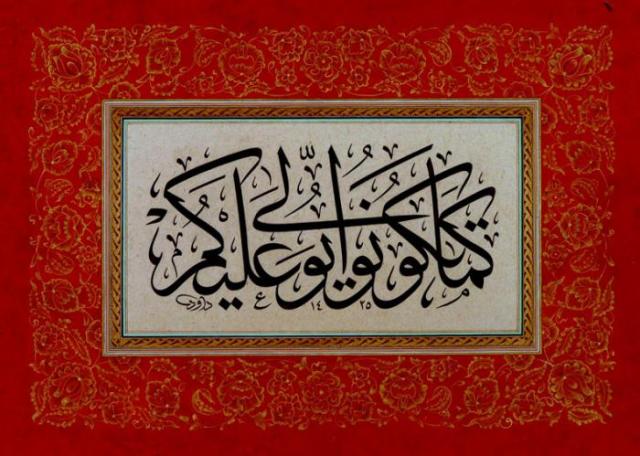 كَمَا تَكُونُوا يُوَلّٰى عَلَيْكُمْ
داود ١٤ ٢٥